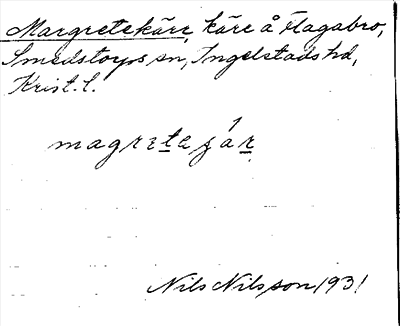 Margretekärr, kärr å Hagabro,
Smedstorps sn, Ingelstads hd,
Krist. l.
magretejár
Nils Nilsson 1931